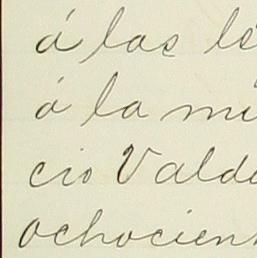 á las le
á la mi
cio Valde
ochocien